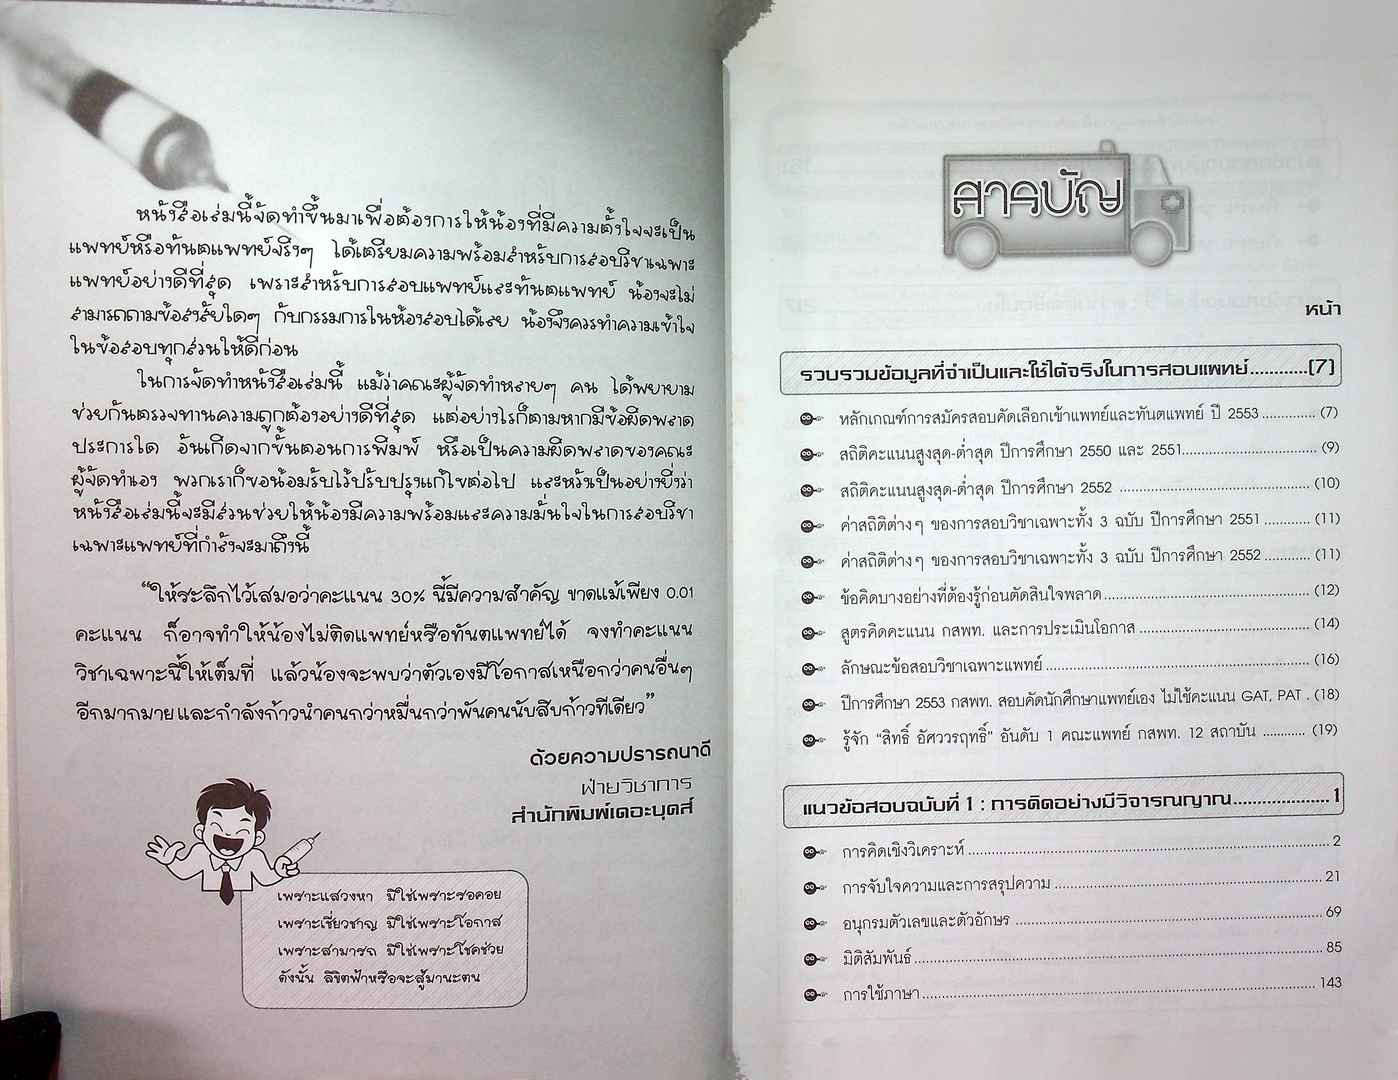 หนังสือเล่มนี้จัดทำขึ้นมาเพื่อต้องการให้น้องที่มีความตั้งใจจะเป็น
แพทย์หรือทันตแพทย์จริงๆ ได้เตรียมความพร้อมสำหรับการสอบวิชาเฉพาะ
แพทย์อย่างดีที่สุด เพราะสำหรับการสอบแพทย์และทันตแพทย์ น้องจะไม่
สามารถถามข้อสงสัยใดๆ กับกรรมการในห้องสอบได้เลย น้องจึงควรทำความเข้าใจ
ในข้อสอบทุกส่วนให้ดีก่อน
ในการจัดทำหนังสือเล่มนี้ แม้ว่าคณะผู้จัดทำหลายๆ คน ได้พยายาม
ช่วยกันตรวจทานความถูกต้องอย่างดีที่สุด แต่อย่างไรก็ตามหากมีข้อผิดพลาด
ประการใด อันเกิดจากขั้นตอนการพิมพ์ หรือเป็นความผิดพลาดของคณะ
ผู้จัดทำเอง พวกเราก็ขอน้อมรับไว้ปรับปรุงแก้ไขต่อไป และหวังเป็นอย่างยิ่งว่า
หนังสือเล่มนี้จะมีส่วนช่วยให้น้องมีความพร้อมและความมั่นใจในการสอบวิชา
เฉพาะแพทย์ที่กำลังจะมาถึงนี้
"ให้ระลึกไว้เสมอว่าคะแนน 30% นี้มีความสำคัญ ขาดแม้เพียง 0.01
คะแนน ก็อาจทำให้น้องไม่ติดแพทย์หรือทันตแพทย์ได้ จงทำคะแนน
วิชาเฉพาะนี้ให้เต็มที่ แล้วน้องจะพบว่าตัวเองมีโอกาสเหนือกว่าคนอื่นๆ
อีกมากมาย และกำลังก้าวนำคนกว่าหมื่นกว่าพันคนนับสิบก้าวทีเดียว"
ด้วยความปรารถนาดี
ฝ่ายวิชาการ
สำนักพิมพ์เดอะบุคส์
เพราะแสวงหา มิใช่เพราะรอคอย
เพราะเชี่ยวชาญ มิใช่เพราะโอกาส
เพราะสามารถ มิใช่เพราะโชคช่วย
ดังนั้น ลิขิตฟ้าหรือจะสู้มานะตน
สารบัญ
หน้า
รวบรวมข้อมูลที่จำเป็นและใช้ได้จริงในการสอบแพทย์............(7)
หลักเกณฑ์การสมัครสอบคัดเลือกเข้าแพทย์และทันตแพทย์ ปี 2553 ............. (7)
สถิติคะแนนสูงสุด-ต่ำสุด ปีการศึกษา 2550 และ 2551.................................. (9)
สถิติคะแนนสูงสุด-ต่ำสุด ปีการศึกษา 2552 ............................................... (10)
ค่าสถิติต่างๆ ของการสอบวิชาเฉพาะทั้ง 3 ฉบับ ปีการศึกษา 2551 ........... (11)
ค่าสถิติต่างๆ ของการสอบวิชาเฉพาะทั้ง 3 ฉบับ ปีการศึกษา 2552 ........... (11)
ข้อคิดบางอย่างที่ต้องรู้ก่อนตัดสินใจพลาด.................................................... (12)
สูตรคิดคะแนน กสพท. และการประเมินโอกาส ........................................... (14)
ลักษณะข้อสอบวิชาเฉพาะแพทย์ .................................................................. (16)
ปีการศึกษา 2553 กสพท. สอบคัดนักศึกษาแพทย์เอง ไม่ใช้คะแนน GAT, PAT . (18)
รู้จัก "สิทธิ์ อัศววรฤทธิ์" อันดับ 1 คณะแพทย์ กสพท. 12 สถาบัน ........... (19)
แนวข้อสอบฉบับที่ 1 : การคิดอย่างมีวิจารณญาณ.....................1
การคิดเชิงวิเคราะห์ ........................................................................................... 2
การจับใจความและการสรุปความ .................................................................... 21
อนุกรมตัวเลขและตัวอักษร ............................................................................. 69
มิติสัมพันธ์....................................................................................................... 85
การใช้ภาษา .................................................................................................... 143